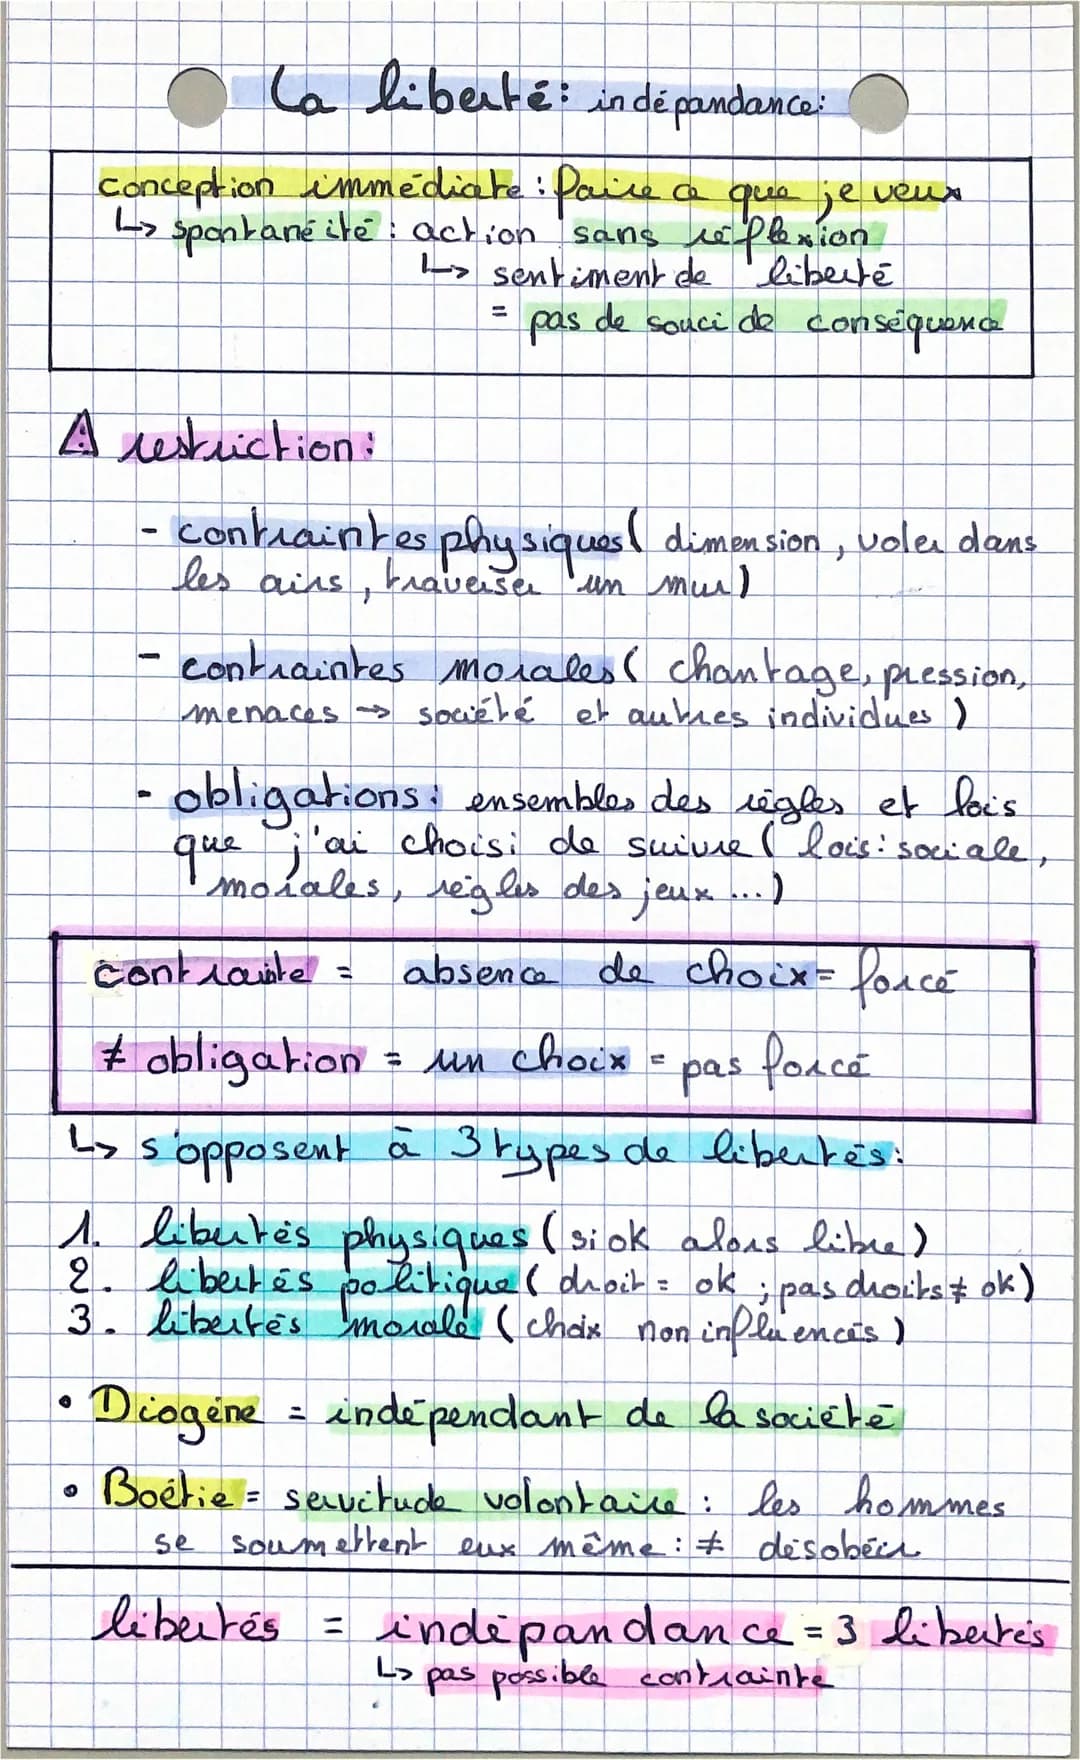 La liberté : indépandance :
conception immédiate : faire ce que je veux
↳ spontanéité : action sans réflexion
↳ sentiment de liberté
= pas de souci de conséquence
⚠ restriction :
- contraintes physiques ( dimension , voler dans
les airs , traverser un mur )
- contraintes morales ( chantage, pression,
menaces → société et autres individues )
- obligations : ensembles des règles et lois
que j'ai choisi de suivre ( lois : sociale ,
morales, règles des jeux ... )
contrainte = absence de choix = forcé
≠ obligation = un choix = pas forcé
↳ s'opposent à 3 types de libertés :
1. libertés physiques ( si ok alors libre )
2. libertés politique ( droit = ok ; pas droits ≠ ok )
3. libertés morale ( choix non influencés )
• Diogéne = indépendant de la société
• Boétie = servitude volontaire : les hommes
se soumettent eux même : ≠ désobéir
libertés = indépandance = 3 libertés
↳ pas possible contrainte